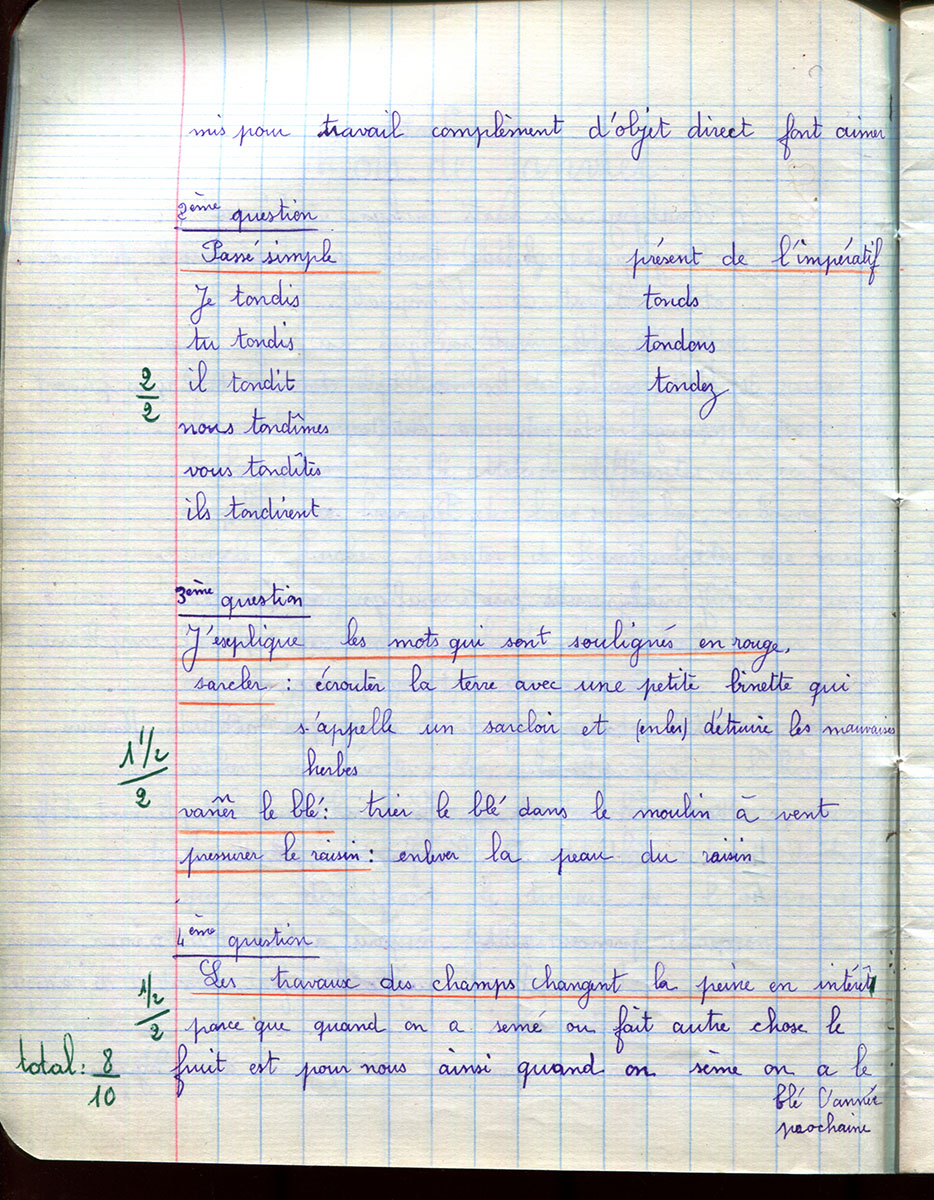 mis pour travail complèment d'objet direct font aimer
2ème question
Passé simple présent de l'impératif
Je tondis tonds
tu tondis tondons
2/2 il tondit tondez
nous tondîmes
vous tondîtes
ils tondirent
3ème question
J'explique les mots qui sont soulignés en rouge.
sarcler : écrouter la terre avec une petite binette qui
s'appelle un sarcloir et (enles) détruire les mauvaises
1 1/2 / 2 herbes
vanner le blé : trier le blé dans le moulin à vent
pressurer le raisin : enlever la peau du raisin
4ème question
Les travaux des champs changent la peine en intérêt
1/2 / 2 parce que quand on a semé ou fait autre chose le
total : 8/10 fruit est pour nous ainsi quand on sème on a le
blé l'année
prochaine